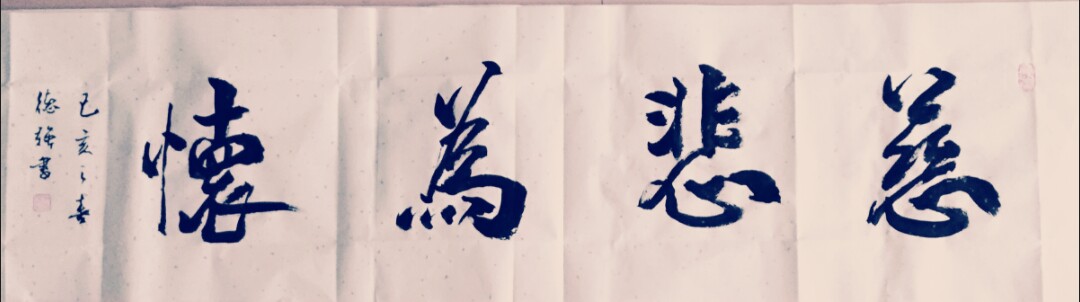 慈悲為懷
己亥之春
德强書